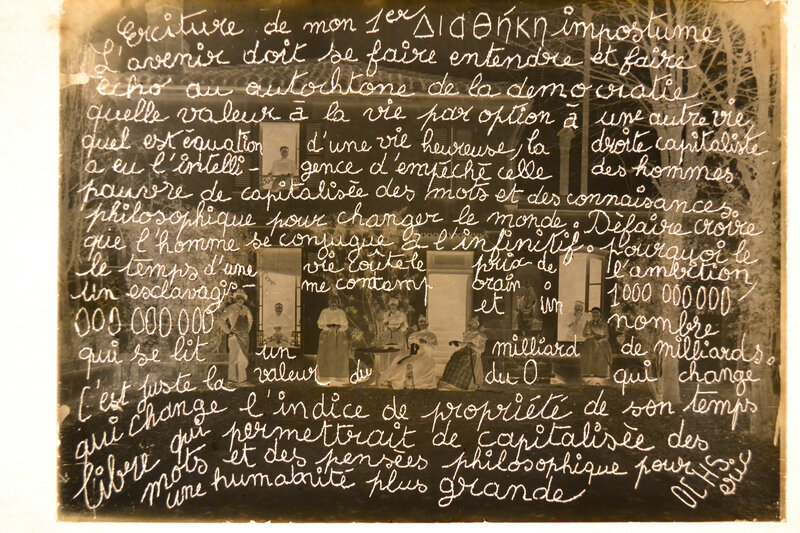 Erciture de mon 1er Διαθήκη impostume
L'avenir doit se faire entendre et faire
écho au autochtone de la democratie
quelle valeur à la vie par option à une autre vie
quel est équation d'une vie heureuse, la droite capitaliste
a eu l'intelli- gence d'empêché celle des hommes
pauvre de capitalisée des mots et des connaisances
philosophique pour changer le monde. Défaire croire
que l'homme se conjugue à l'infinitif. pourquoi le
le temps d'une vie coûte le prix de l'ambition
un esclavagis- me contemp orain et in 1000 000 000
000 000 000 nombre
qui se lit un milliard de milliards.
C'est juste la valeur du du 0 qui change
qui change l'indice de propriété de son temps
libre qui permettrait de capitalisée des
mots et des pensées philosophique pour
une humanité plus grande
OCHS eric